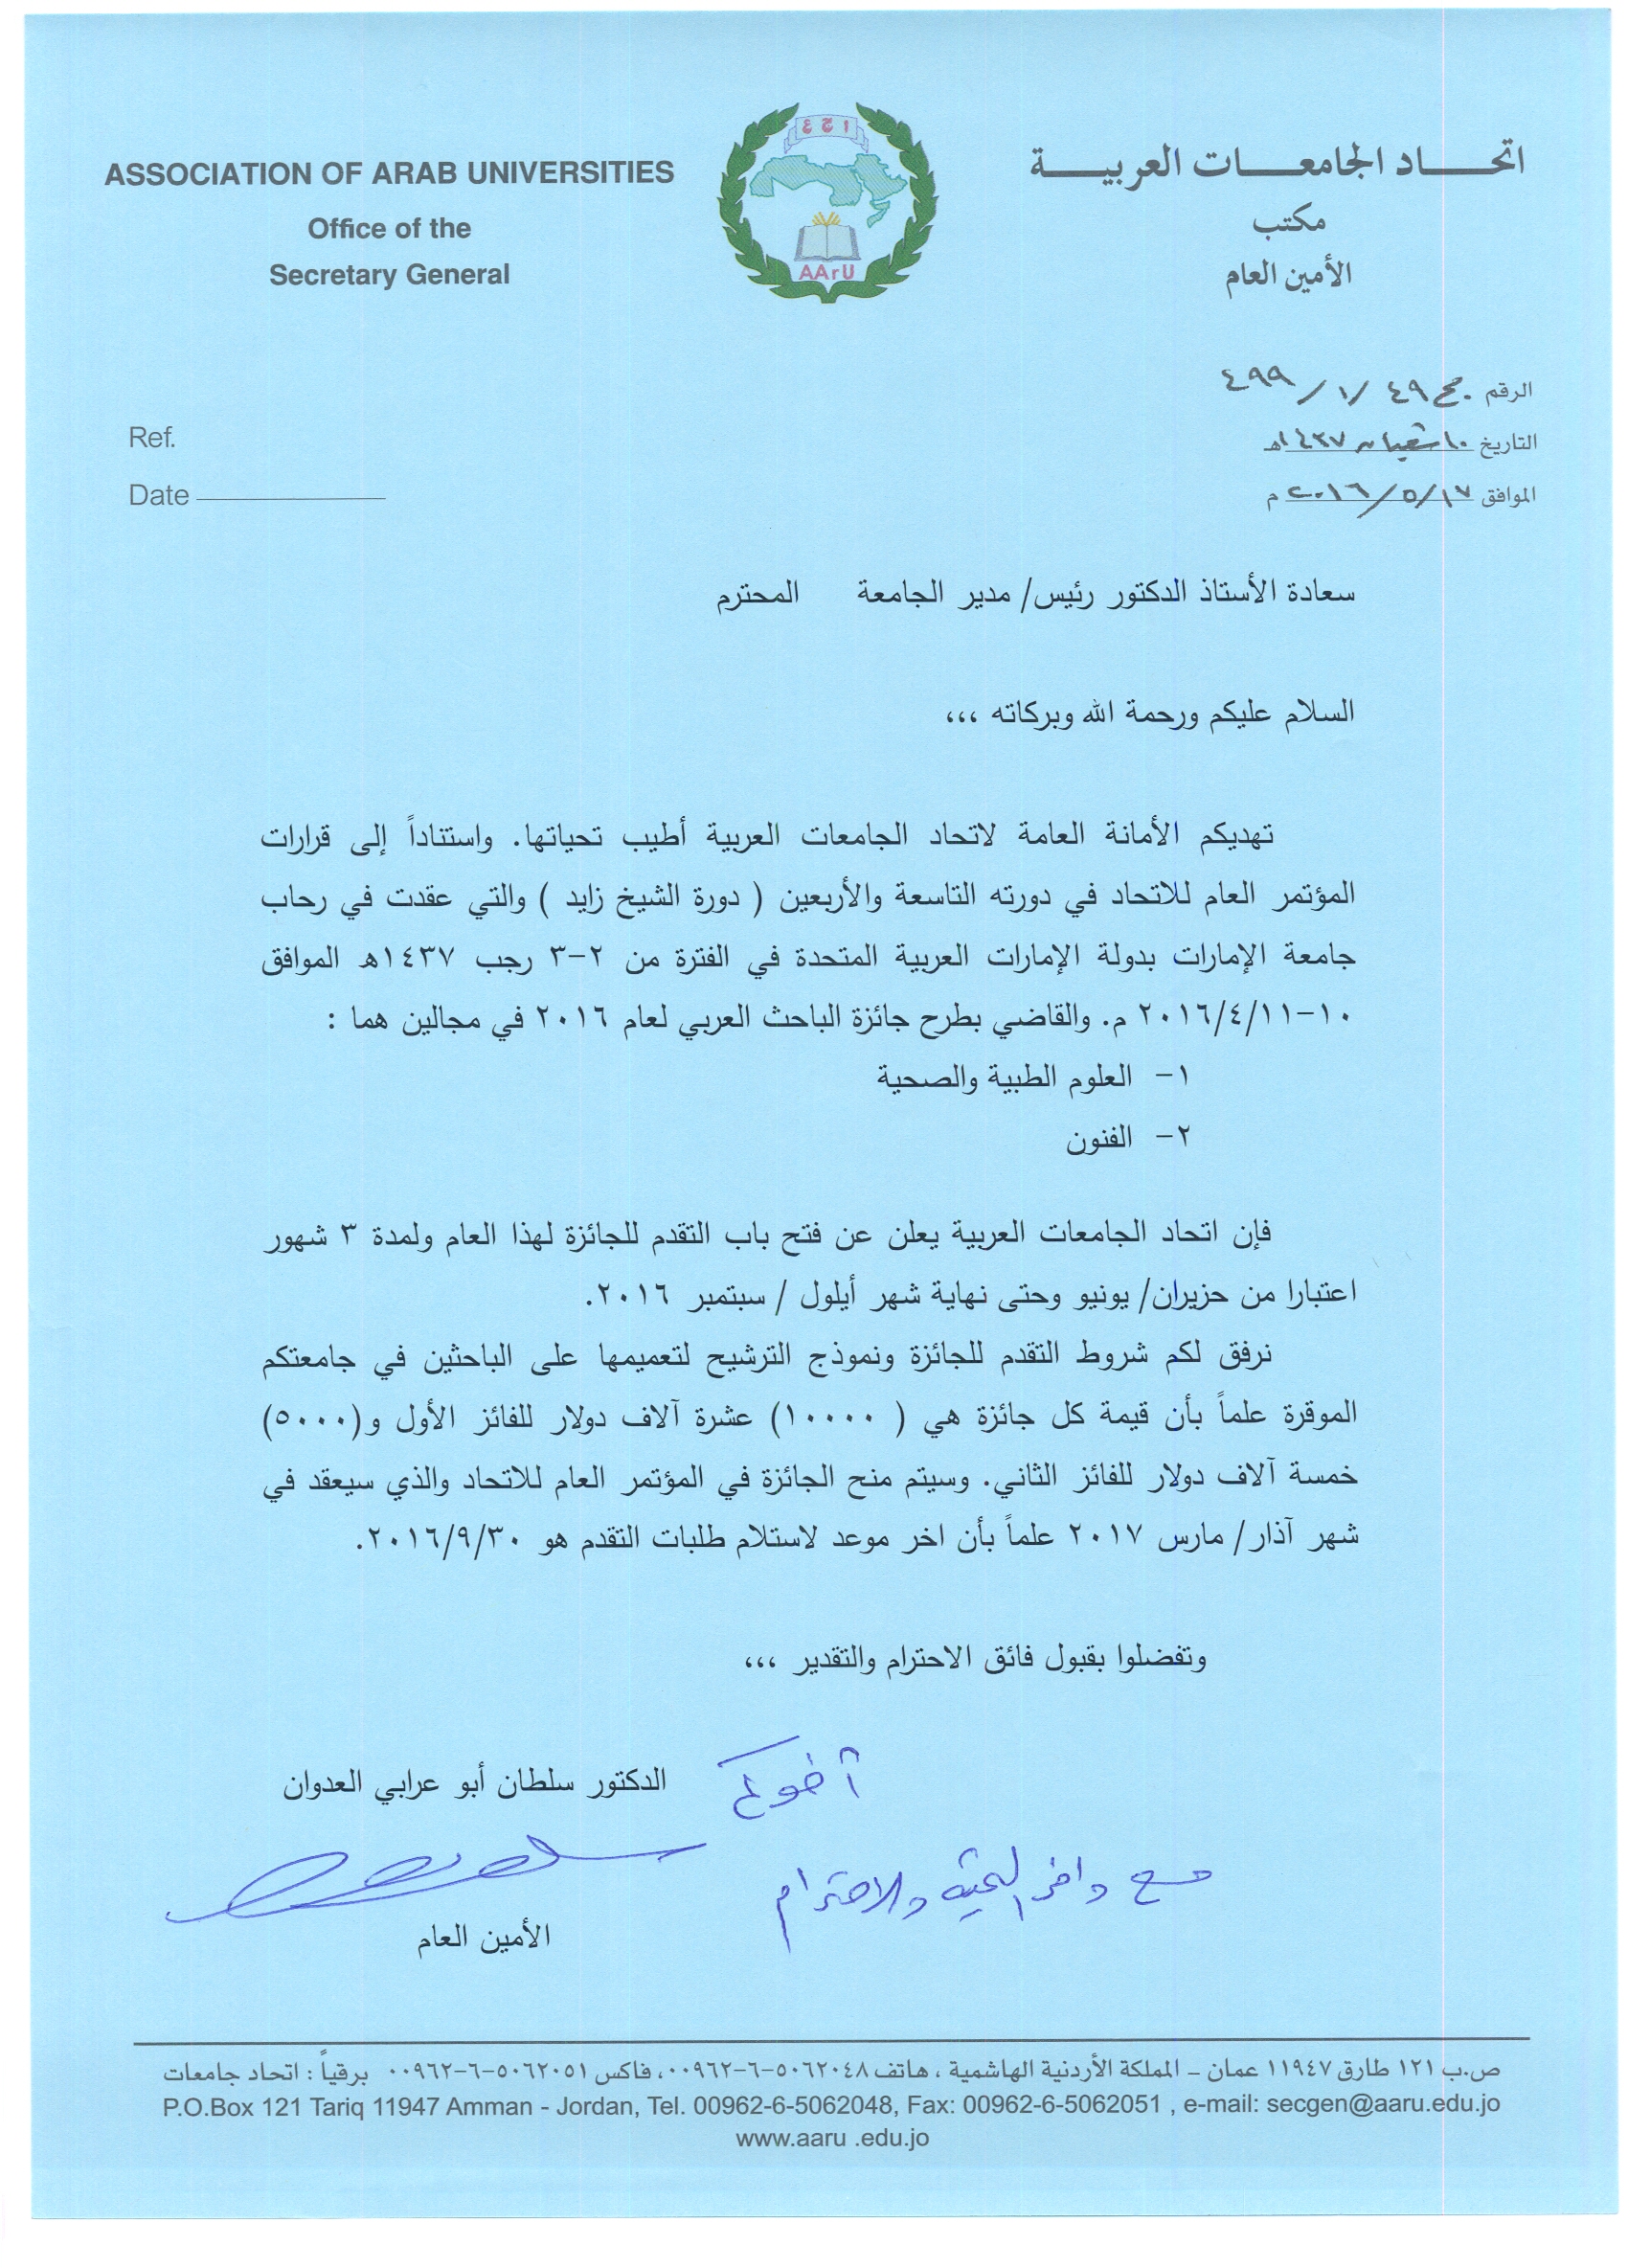 ASSOCIATION OF ARAB UNIVERSITIES
Office of the
Secretary General
ا ج ع
AArU
اتحـــاد الجامعـــات العربيـــة
مكتب
الأمين العام
الرقم ٤٩ / ١ / ٤٩٩
التاريخ ١٠ شعبان ١٤٣٧هـ
الموافق ٢٠١٦/٥/١٧ م
Ref.
Date
سعادة الأستاذ الدكتور رئيس/ مدير الجامعة المحترم
السلام عليكم ورحمة الله وبركاته ،،،
تهديكم الأمانة العامة لاتحاد الجامعات العربية أطيب تحياتها. واستناداً إلى قرارات
المؤتمر العام للاتحاد في دورته التاسعة والأربعين ( دورة الشيخ زايد ) والتي عقدت في رحاب
جامعة الإمارات بدولة الإمارات العربية المتحدة في الفترة من ٢-٣ رجب ١٤٣٧هـ الموافق
١٠-٢٠١٦/٤/١١ م. والقاضي بطرح جائزة الباحث العربي لعام ٢٠١٦ في مجالين هما :
١- العلوم الطبية والصحية
٢- الفنون
فإن اتحاد الجامعات العربية يعلن عن فتح باب التقدم للجائزة لهذا العام ولمدة ٣ شهور
اعتبارا من حزيران/ يونيو وحتى نهاية شهر أيلول / سبتمبر ٢٠١٦.
نرفق لكم شروط التقدم للجائزة ونموذج الترشيح لتعميمها على الباحثين في جامعتكم
الموقرة علماً بأن قيمة كل جائزة هي ( ١٠٠٠٠) عشرة آلاف دولار للفائز الأول و(٥٠٠٠)
خمسة آلاف دولار للفائز الثاني. وسيتم منح الجائزة في المؤتمر العام للاتحاد والذي سيعقد في
شهر آذار/ مارس ٢٠١٧ علماً بأن اخر موعد لاستلام طلبات التقدم هو ٢٠١٦/٩/٣٠.
وتفضلوا بقبول فائق الاحترام والتقدير ،،،
أخوكم
الدكتور سلطان أبو عرابي العدوان
مع وافر التحية والاحترام
الأمين العام
ص.ب ١٢١ طارق ١١٩٤٧ عمان – المملكة الأردنية الهاشمية ، هاتف ٥٠٦٢٠٤٨-٦-٠٠٩٦٢، فاكس ٥٠٦٢٠٥١-٦-٠٠٩٦٢ برقياً : اتحاد جامعات
P.O.Box 121 Tariq 11947 Amman - Jordan, Tel. 00962-6-5062048, Fax: 00962-6-5062051 , e-mail: secgen@aaru.edu.jo
www.aaru .edu.jo